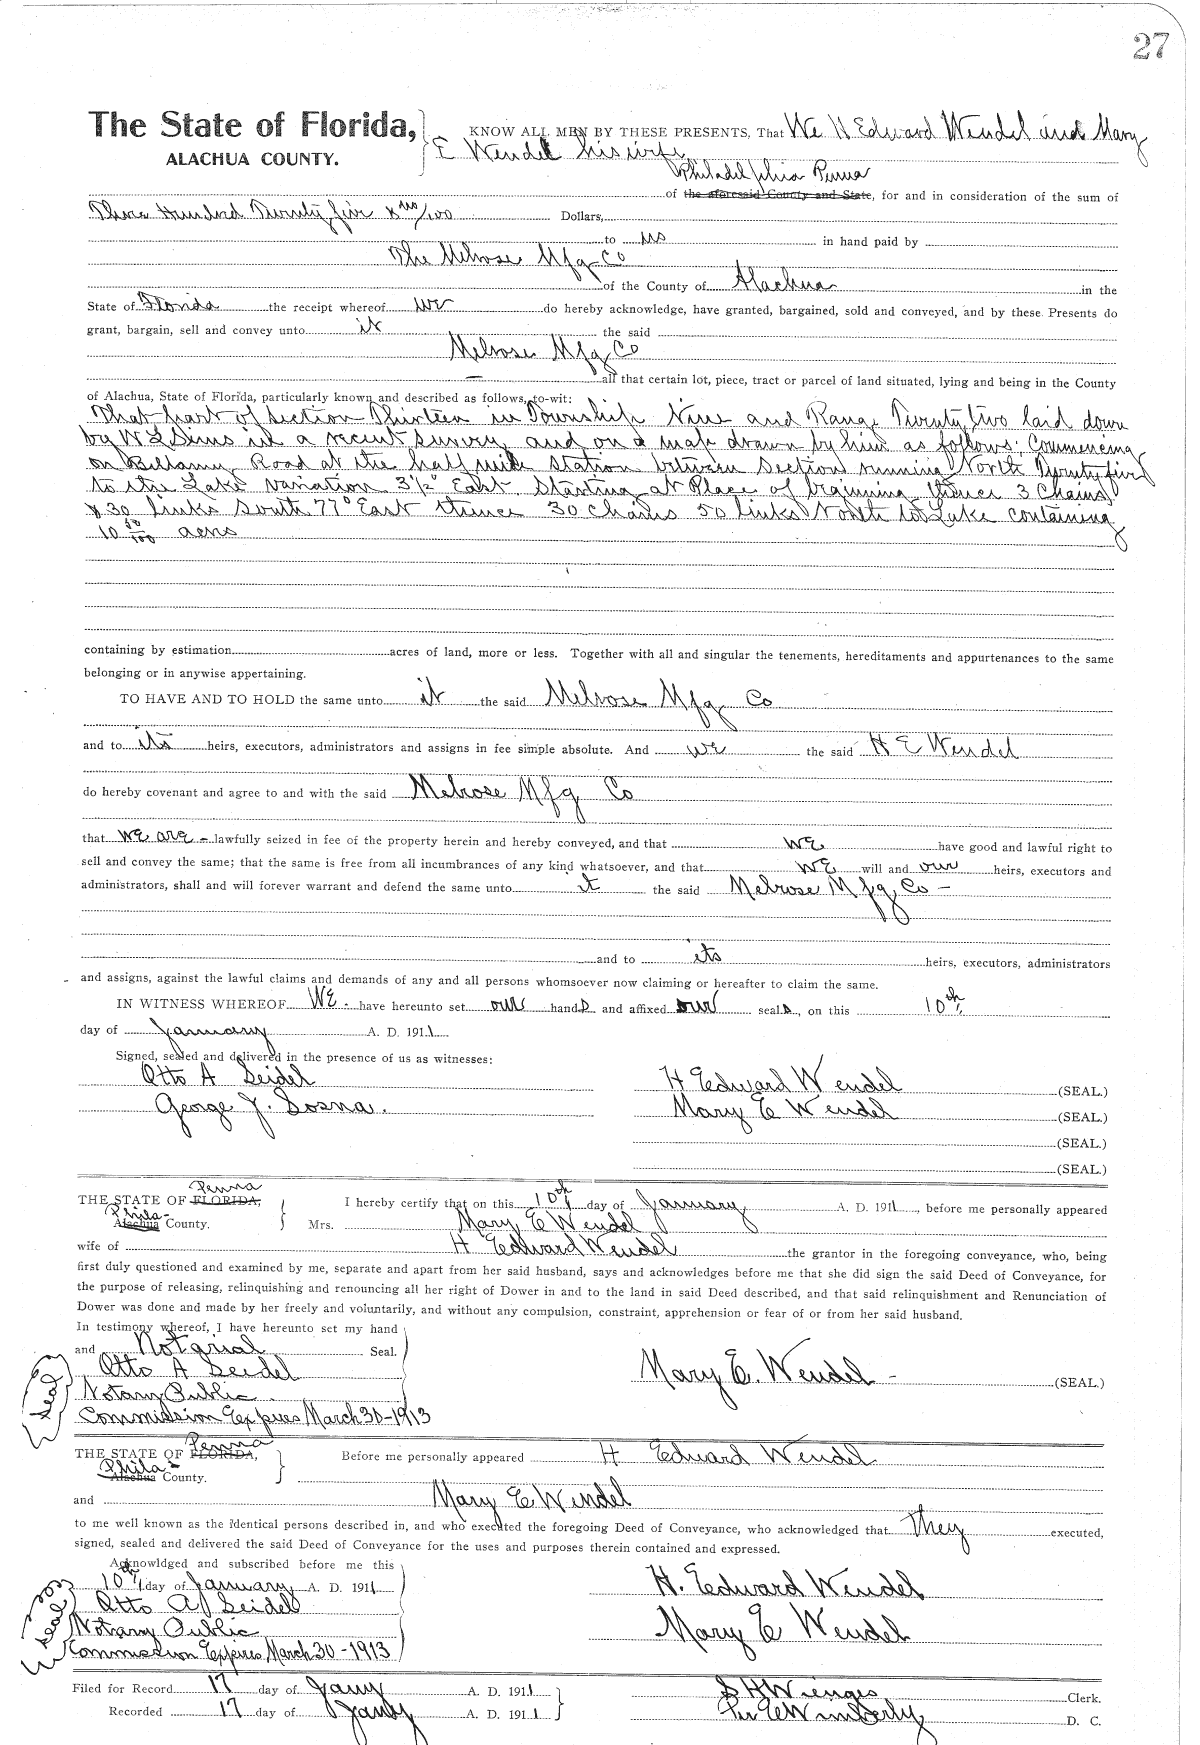 27
The State of Florida,
ALACHUA COUNTY.
KNOW ALL MEN BY THESE PRESENTS, That We H Edward Wendel and Mary
E Wendel his wife
Philadelphia Penna
of the aforesaid County and State, for and in consideration of the sum of
Three Hundred Twenty five & no/100 Dollars,
to us in hand paid by
The Melrose Mfg Co
of the County of Alachua in the
State of Florida the receipt whereof we do hereby acknowledge, have granted, bargained, sold and conveyed, and by these Presents do
grant, bargain, sell and convey unto it the said
Melrose Mfg Co
all that certain lot, piece, tract or parcel of land situated, lying and being in the County
of Alachua, State of Florida, particularly known and described as follows, to-wit:
That part of Section Thirteen in Township Nine and Range Twenty two laid down
by W L Sims in a recent survey and on a map drawn by him as follows: Commencing
on Bellamy Road at the half mile station between section running North Twenty five
to the Lake variation 3 1/2° East Starting at Place of beginning thence 3 Chains
& 30 links South 77° East thence 30 chains 50 links North to Lake containing
10 50/100 acres
containing by estimation acres of land, more or less. Together with all and singular the tenements, hereditaments and appurtenances to the same
belonging or in anywise appertaining.
TO HAVE AND TO HOLD the same unto it the said Melrose Mfg Co
and to its heirs, executors, administrators and assigns in fee simple absolute. And we the said H E Wendel
do hereby covenant and agree to and with the said Melrose Mfg Co
that we are - lawfully seized in fee of the property herein and hereby conveyed, and that we have good and lawful right to
sell and convey the same; that the same is free from all incumbrances of any kind whatsoever, and that we will and our heirs, executors and
administrators, shall and will forever warrant and defend the same unto it the said Melrose Mfg Co -
and to its heirs, executors, administrators
and assigns, against the lawful claims and demands of any and all persons whomsoever now claiming or hereafter to claim the same.
IN WITNESS WHEREOF We - have hereunto set our hands and affixed our seals, on this 10th
day of January A. D. 1911
Signed, sealed and delivered in the presence of us as witnesses:
Otto A Seidel H Edward Wendel (SEAL.)
George J. Sosna. Mary E Wendel (SEAL.)
(SEAL.)
(SEAL.)
Penna
THE STATE OF FLORIDA, I hereby certify that on this 10th day of January A. D. 1911, before me personally appeared
Phila-
Alachua County. Mrs. Mary E Wendel
wife of H Edward Wendel the grantor in the foregoing conveyance, who, being
first duly questioned and examined by me, separate and apart from her said husband, says and acknowledges before me that she did sign the said Deed of Conveyance, for
the purpose of releasing, relinquishing and renouncing all her right of Dower in and to the land in said Deed described, and that said relinquishment and Renunciation of
Dower was done and made by her freely and voluntarily, and without any compulsion, constraint, apprehension or fear of or from her said husband.
In testimony whereof, I have hereunto set my hand
and Notarial Seal.
Otto A Seidel Mary E. Wendel - (SEAL.)
Seal
Notary Public
Commission Expires March 30-1913
Penna
THE STATE OF FLORIDA, Before me personally appeared H Edward Wendel
Phila-
Alachua County.
and Mary E Wendel
to me well known as the identical persons described in, and who executed the foregoing Deed of Conveyance, who acknowledged that they executed,
signed, sealed and delivered the said Deed of Conveyance for the uses and purposes therein contained and expressed.
Acknowldged and subscribed before me this
10th day of January A. D. 1911 H. Edward Wendel
Otto A Seidel
Seal
Notary Public Mary E Wendel
Commission Expires March 30-1913
Filed for Record 17 day of Jany A. D. 1911 S H Wienges Clerk.
Recorded 17 day of Jany A. D. 1911 Per E Wimberly D. C.